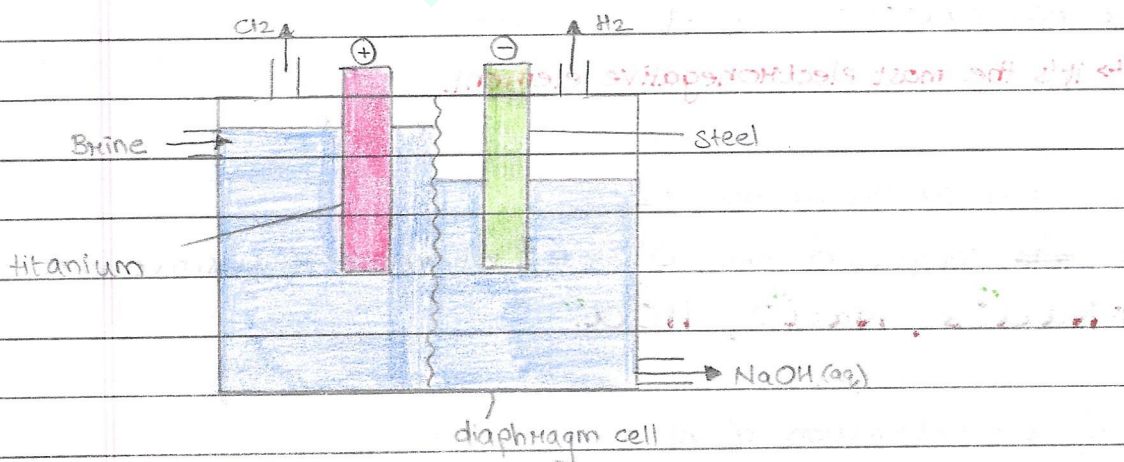 Cl2
H2
+
−
Brine
Steel
titanium
NaOH (aq)
diaphragm cell